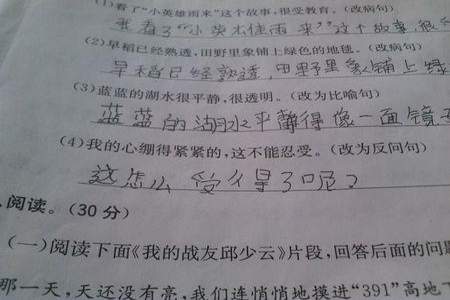 (1)看了“小英雄雨来”这个故事,很受教育。(改病句)
我看了“小英雄雨来”这个故事,很受
(2)早稻已经熟透,田野里象铺上绿色的地毯。(改病句)
早稻已经熟透,田野里象铺上绿
(3)蓝蓝的湖水很平静,很透明。(改为比喻句)
蓝蓝的湖水平静得像一面镜
(4)我的心绷得紧紧的,这不能忍受。(改为反问句)
这怎么受得了呢?
阅读。(30分)
(一)阅读下面《我的战友邱少云》片段,回答后面的问题
那一天,天还没有亮,我们连悄悄地摸进“391”高地下